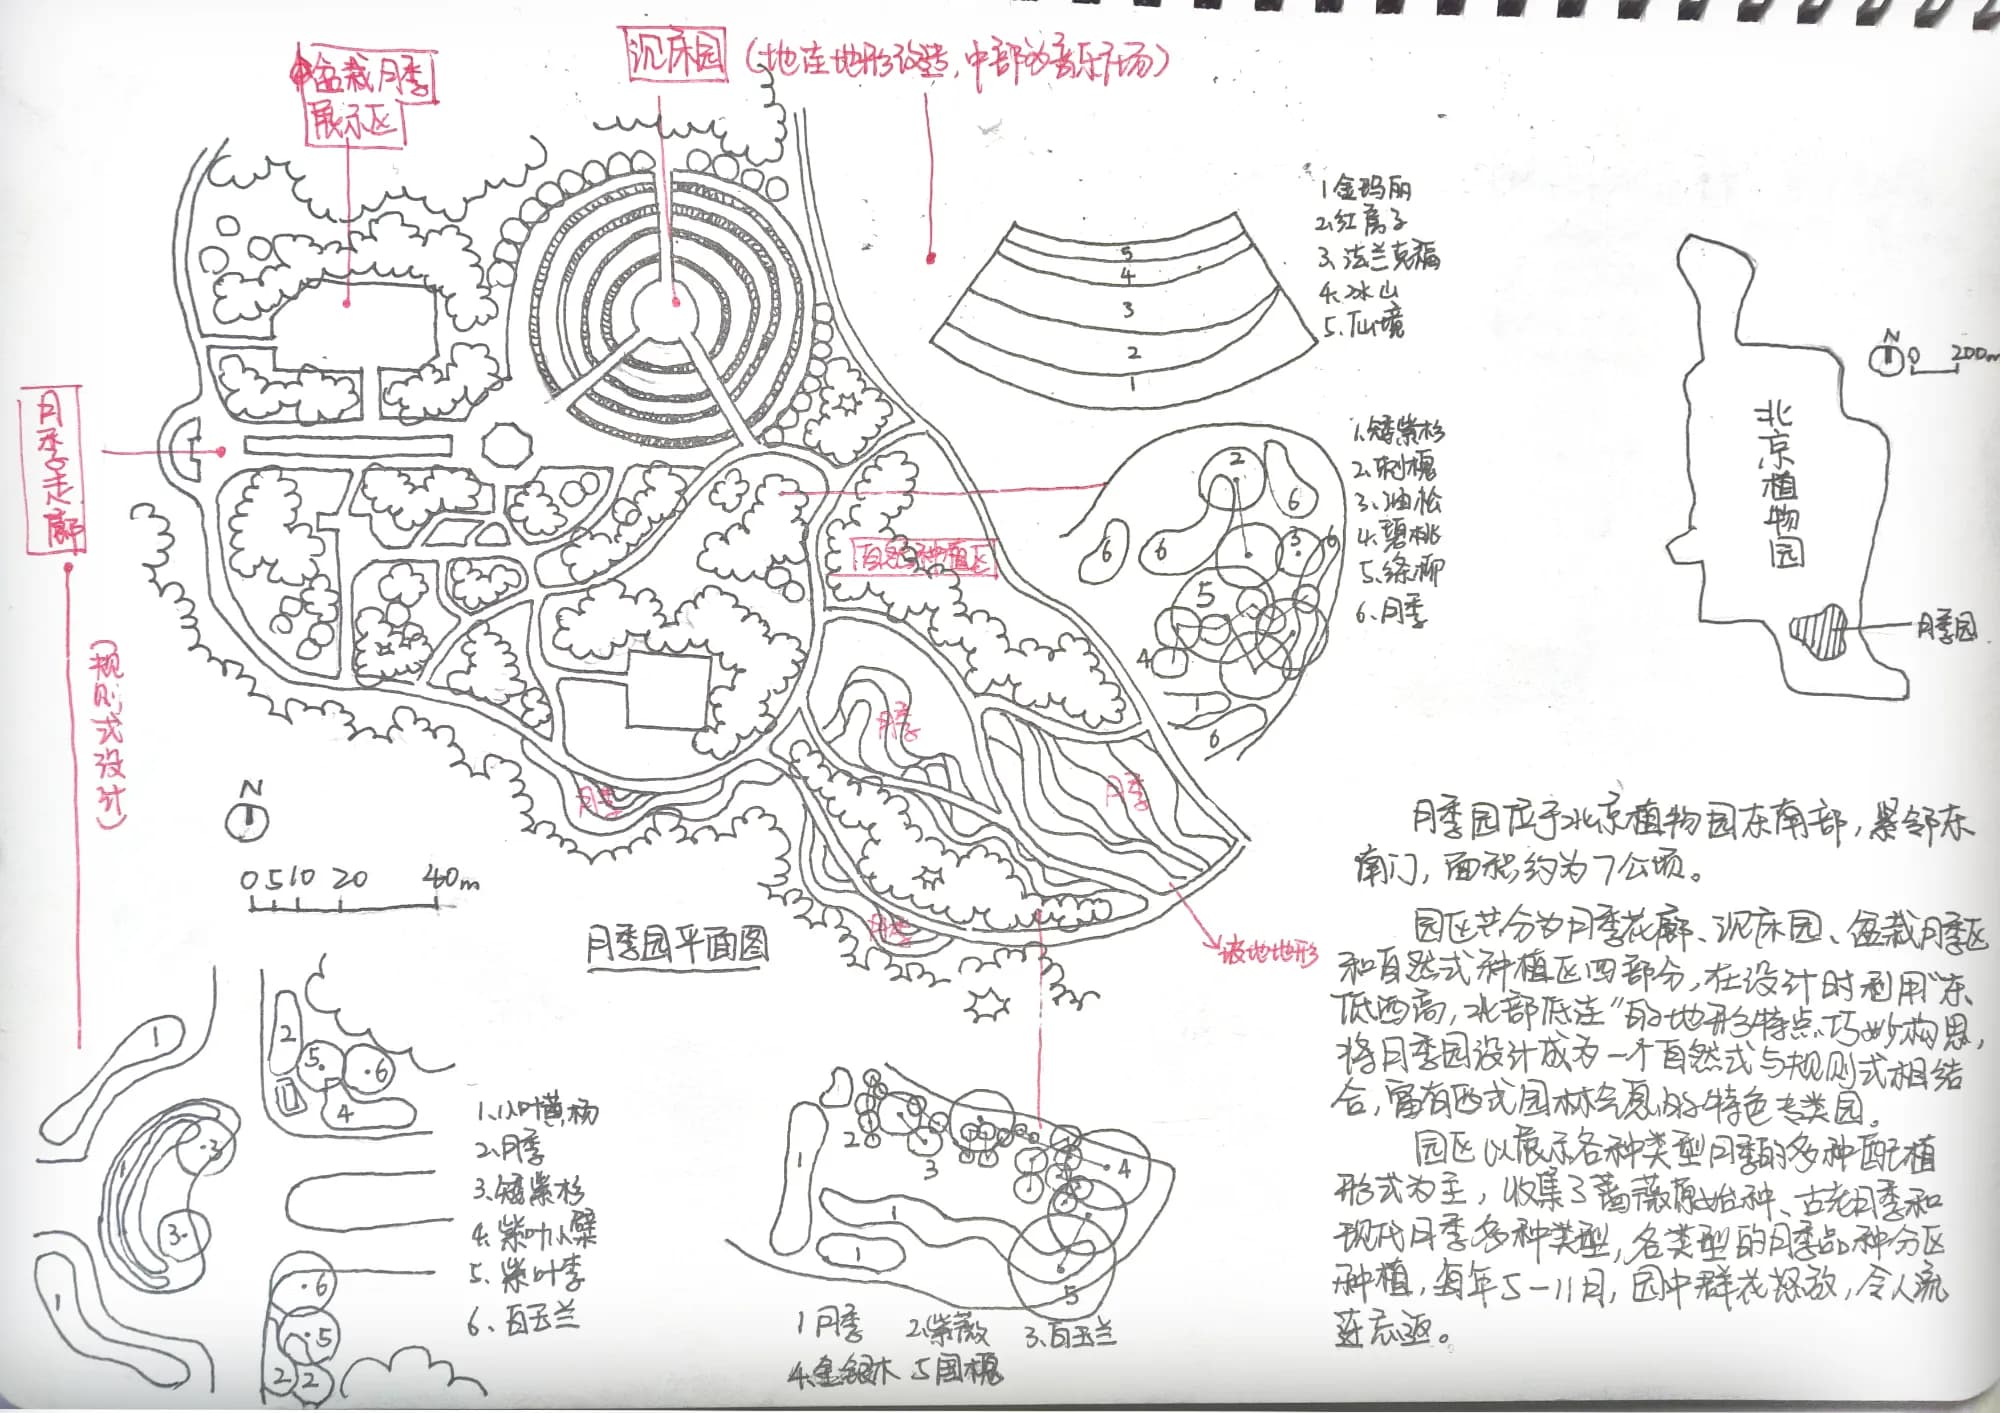 盆栽月季
展示区
沉床园（地连地形改造，中部为音乐广场）
月季走廊
（规则式设计）
自然式种植区
月季
月季
月季
月季
坡地地形
N
0 5 10 20 40m
月季园平面图
5
4
3
2
1
1 金玛丽
2.红房子
3、法兰克福
4.冰山
5.仙境
1.矮紫杉
2.刺槐
3、油松
4.碧桃
5、绦柳
6、月季
2
6
6
6
3
6
5
4
1
6
N
0 200m
北京植物园
月季园
月季园位于北京植物园东南部，紧邻东
南门，面积约为7公顷。
园区共分为月季花廊、沉床园、盆栽月季区
和自然式种植区四部分，在设计时利用“东
低西高，北部低连”的地形特点巧妙构思，
将月季园设计成为一个自然式与规则式相结
合，富有西式园林气息的特色专类园。
园区以展示各种类型月季的多种配植
形式为主，收集了蔷薇原始种、古老月季和
现代月季多种类型，各类型的月季品种分区
种植，每年5-11月，园中群花怒放，令人流
连忘返。
1
2
5
6
4
3
1
3
1
6
5
2
2
1.小叶黄杨
2.月季
3.矮紫杉
4.紫叶小檗
5、紫叶李
6、白玉兰
1
2
3
4
1
1
5
1月季 2.紫薇 3.白玉兰
4.金银木 5国槐